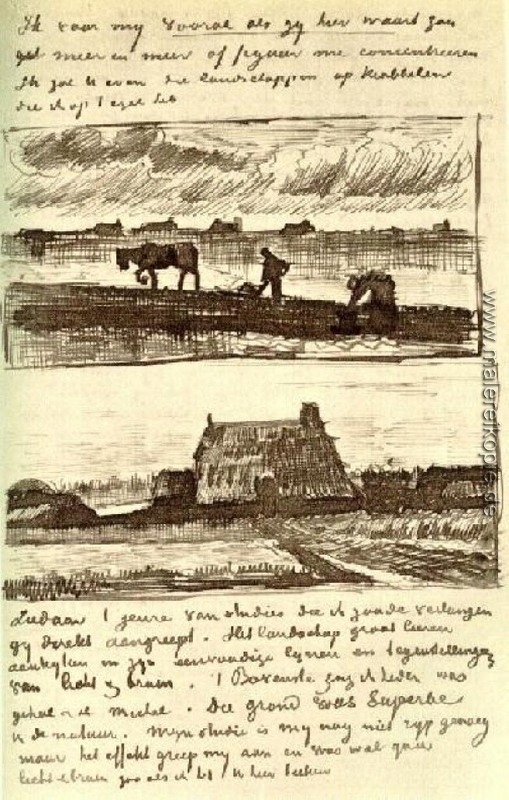 Ik voor my vooral als gy hier waart zou
meer en meer op figuur me concentreeren
Ik zal U even die landschappen op krabbelen
die ik op 't ezel heb
www.malereikopie.de
Ziedaar 't genre van studies die ik zoude verlangen
gy direkt aangreept. Het landschap groot leeren
aankyken in zyn eenvoudige lynen en tegenstellingen
van licht & bruin. 't Bovenste zag ik heden was
geheel Michel. Die grond was Superbe
in de natuur. Myn studie is my nog niet ryp genoeg
maar het effekt greep my aan en was wel qua
licht & bruin zoo als ik het U hier teeken